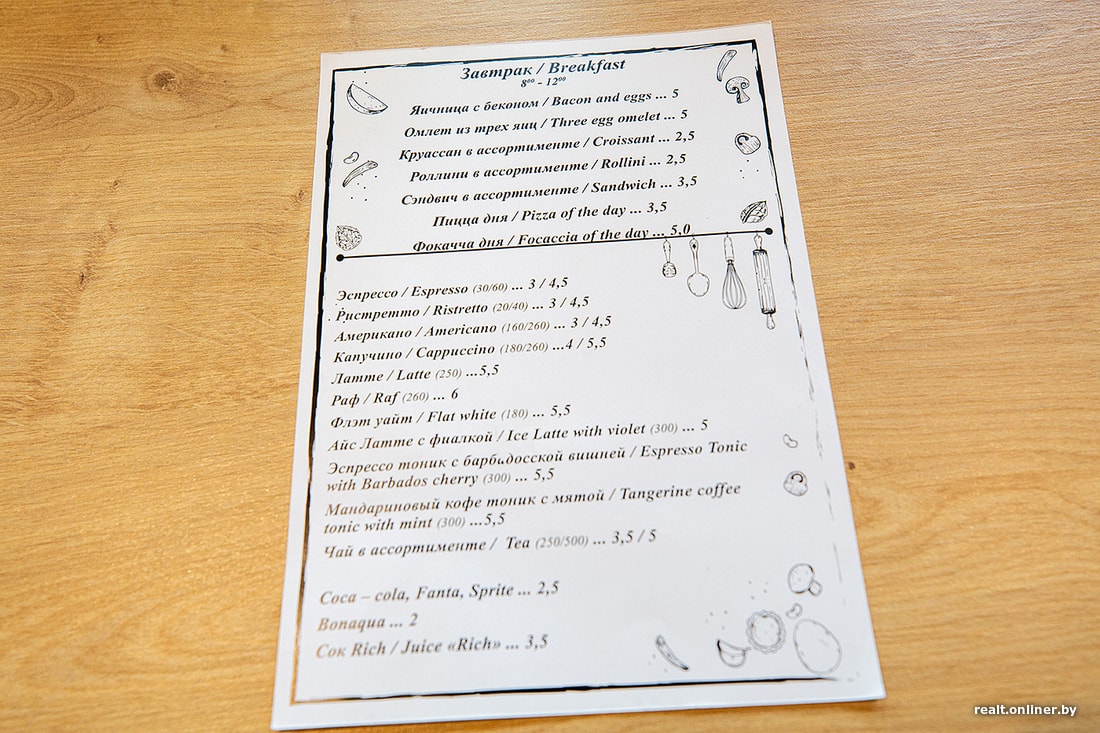 Завтрак / Breakfast
8⁰⁰ - 12⁰⁰
Яичница с беконом / Bacon and eggs ... 5
Омлет из трех яиц / Three egg omelet ... 5
Круассан в ассортименте / Croissant ... 2,5
Роллини в ассортименте / Rollini ... 2,5
Сэндвич в ассортименте / Sandwich ... 3,5
Пицца дня / Pizza of the day ... 3,5
Фокачча дня / Focaccia of the day ... 5,0
Эспрессо / Espresso (30/60) ... 3 / 4,5
Ристретто / Ristretto (20/40) ... 3 / 4,5
Американо / Americano (160/260) ... 3 / 4,5
Капучино / Cappuccino (180/260) ...4 / 5,5
Латте / Latte (250) ...5,5
Раф / Raf (260) ... 6
Флэт уайт / Flat white (180) ... 5,5
Айс Латте с фиалкой / Ice Latte with violet (300) ... 5
Эспрессо тоник с барбыдосской вишней / Espresso Tonic
with Barbados cherry (300) ... 5,5
Мандариновый кофе тоник с мятой / Tangerine coffee
tonic with mint (300) ...5,5
Чай в ассортименте / Tea (250/500) ... 3,5 / 5
Coca – cola, Fanta, Sprite ... 2,5
Bonaqua ... 2
Сок Rich / Juice «Rich» ... 3,5
realt.onliner.by